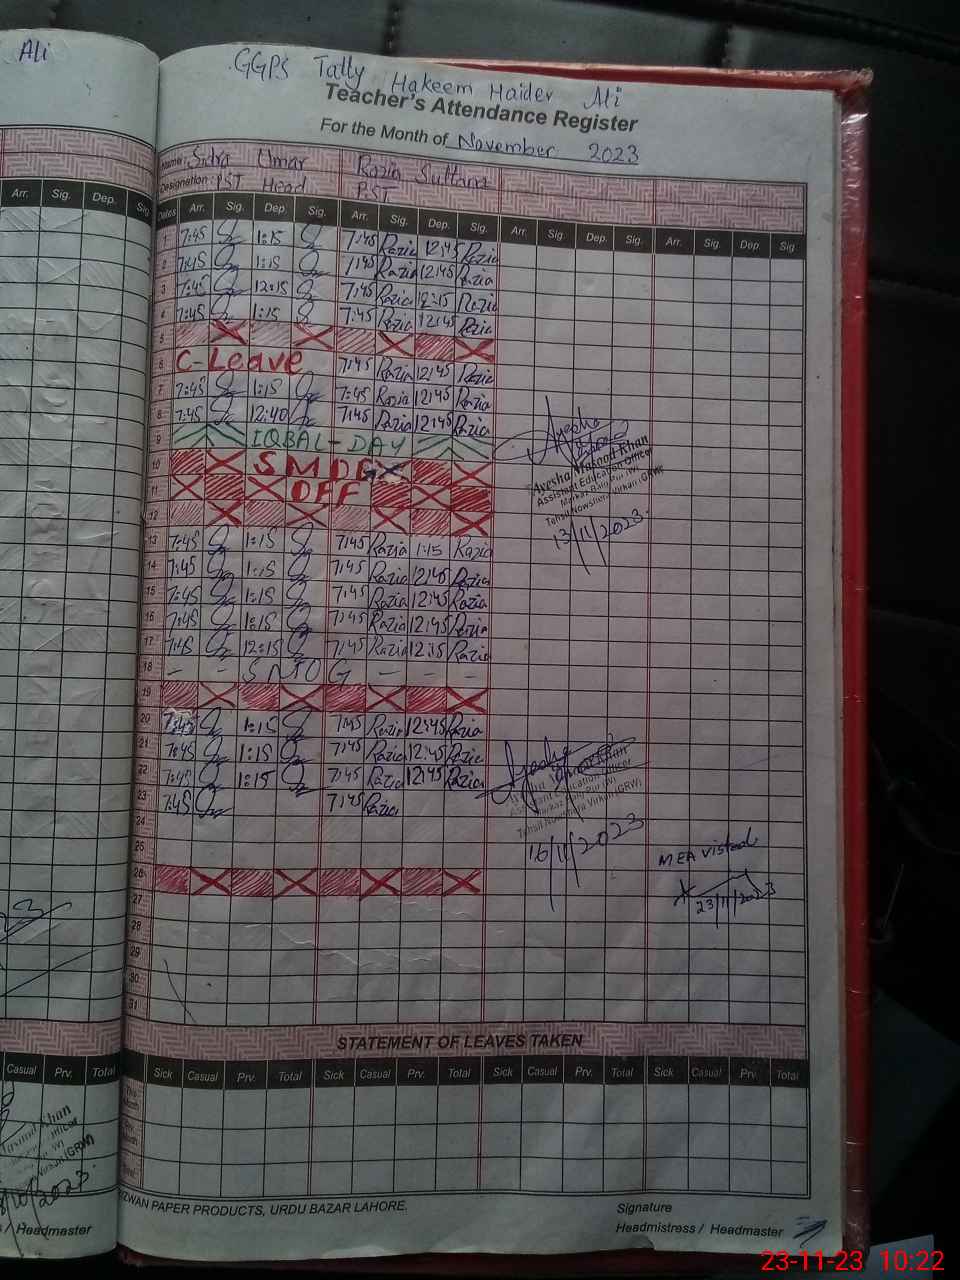 Ali
GGPS Tatly Hakeem Haider Ali
Teacher's Attendance Register
For the Month of November 2023
Name: Sidra Umar Razia Sultana
Designation: PST Head PST
Arr. Sig. Dep. Sig
Dates Arr. Sig. Dep. Sig. Arr. Sig. Dep. Sig. Arr. Sig. Dep. Sig. Arr. Sig. Dep. Sig
1 7:45 1:15 7:45 Razia 12:45 Razia
2 7:45 1:15 7:45 Razia 12:45 Razia
3 7:45 12:15 7:45 Razia 12:15 Razia
4 7:45 1:15 7:45 Razia 12:45 Razia
5
6 C-Leave 7:45 Razia 12:45 Razia
7 7:45 1:15 7:45 Razia 12:45 Razia
8 7:45 12:40 7:45 Razia 12:45 Razia
9 IQBAL-DAY
10 SMOG
11 OFF
12
Ayesha Masood Khan
Assistant Education Officer
Markaz Balu Pur (W)
Tehsil Nowshera Virkan (GRW)
13/11/2023
13 7:45 1:15 7:45 Razia 1:15 Razia
14 7:45 1:15 7:45 Razia 12:45 Razia
15 7:45 1:15 7:45 Razia 12:45 Razia
16 7:45 1:15 7:45 Razia 12:45 Razia
17 7:45 12:15 7:45 Razia 12:15 Razia
18 - - S M O G - - -
19
20 7:45 1:15 7:45 Razia 12:45 Razia
21 7:45 1:15 7:45 Razia 12:45 Razia
22 7:45 1:15 7:45 Razia 12:45 Razia
23 7:45 7:45 Razia
24
Assistant Education Officer
Markaz Balu Pur (W)
Tehsil Nowshera Virkan (GRW)
16/11/2023
25
26
MEA visted
23/11/2023
27
28
29
30
31
STATEMENT OF LEAVES TAKEN
Casual Prv. Total
Sick Casual Prv. Total Sick Casual Prv. Total Sick Casual Prv. Total Sick Casual Prv. Total
This Month
Total
Masood Khan
Officer
(W)
Virkan (GRW)
/10/2023
/ Headmaster
RIZWAN PAPER PRODUCTS, URDU BAZAR LAHORE.
Signature
Headmistress / Headmaster
23-11-23 10:22